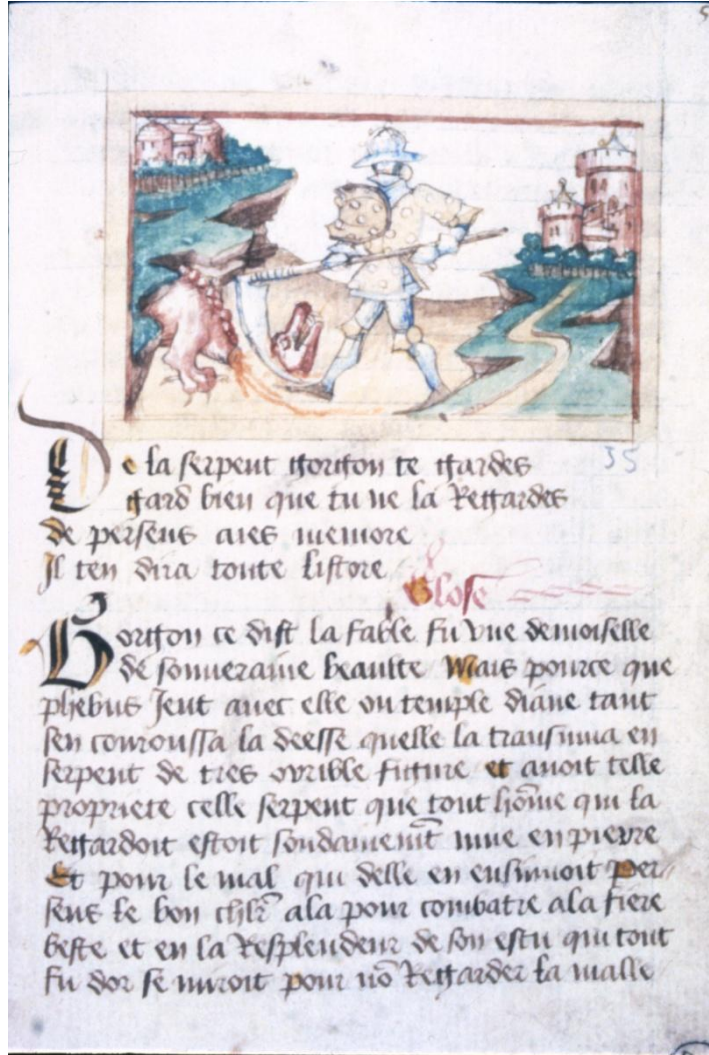 De la serpent gorgon te gardes
gard bien que tu ne la Regardes
de perseus aies memore
Il ten dira toute listore
Glose
Gorgon ce dist la fable fu vne demoiselle
de souueraine beaulte Mais pource que
phebus Jeut auec elle ou temple diane tant
sen couroussa la deesse quelle la transmua en
serpent de tres orrible figure et auoit telle
propriete celle serpent que tout hom̄e qui la
Regardoit estoit soudainemt̄ mue en pierre
Et pour le mal qui delle en ensuiuoit Per
seus le bon chlr̄ ala pour combatre a la fiere
beste et en la Resplendeur de son escu qui tout
fu dor se miroit pour nō Regarder la malle
35